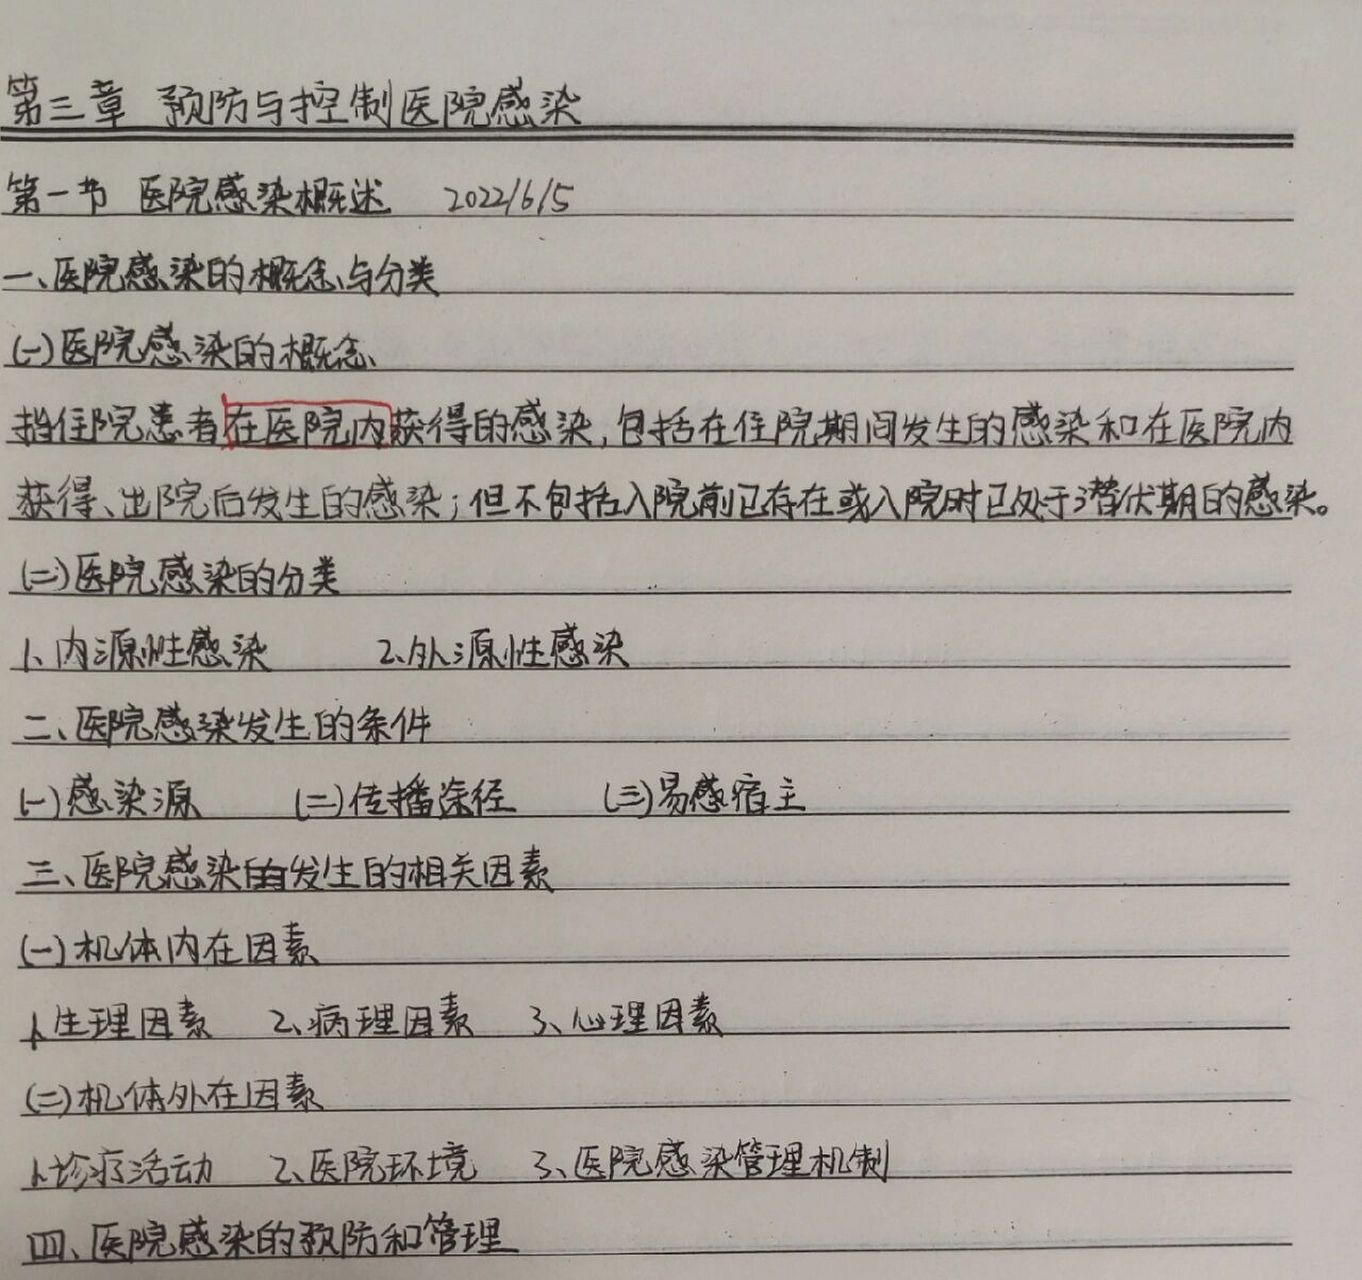 第三章 预防与控制医院感染
第一节 医院感染概述 2022/6/5
一、医院感染的概念与分类
(一)医院感染的概念
指住院患者在医院内获得的感染,包括在住院期间发生的感染和在医院内
获得、出院后发生的感染;但不包括入院前已存在或入院时已处于潜伏期的感染。
(二)医院感染的分类
1、内源性感染 2、外源性感染
二、医院感染发生的条件
(一)感染源 (二)传播途径 (三)易感宿主
三、医院感染的发生的相关因素
(一)机体内在因素
1、生理因素 2、病理因素 3、心理因素
(二)机体外在因素
1、诊疗活动 2、医院环境 3、医院感染管理机制
四、医院感染的预防和管理